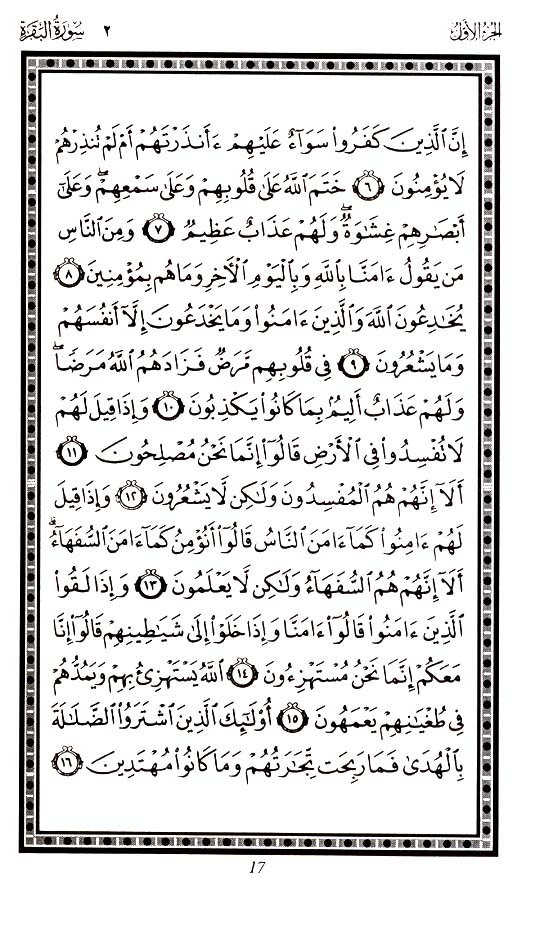 الجزء الأول
٢ سورة البقرة
إِنَّ ٱلَّذِينَ كَفَرُوا۟ سَوَآءٌ عَلَيْهِمْ ءَأَنذَرْتَهُمْ أَمْ لَمْ تُنذِرْهُمْ
لَا يُؤْمِنُونَ ٦ خَتَمَ ٱللَّهُ عَلَىٰ قُلُوبِهِمْ وَعَلَىٰ سَمْعِهِمْ ۖ وَعَلَىٰٓ
أَبْصَـٰرِهِمْ غِشَـٰوَةٌ ۖ وَلَهُمْ عَذَابٌ عَظِيمٌ ٧ وَمِنَ ٱلنَّاسِ
مَن يَقُولُ ءَامَنَّا بِٱللَّهِ وَبِٱلْيَوْمِ ٱلْـَٔاخِرِ وَمَا هُم بِمُؤْمِنِينَ ٨
يُخَـٰدِعُونَ ٱللَّهَ وَٱلَّذِينَ ءَامَنُوا۟ وَمَا يَخْدَعُونَ إِلَّآ أَنفُسَهُمْ
وَمَا يَشْعُرُونَ ٩ فِى قُلُوبِهِم مَّرَضٌ فَزَادَهُمُ ٱللَّهُ مَرَضًا ۖ
وَلَهُمْ عَذَابٌ أَلِيمٌۢ بِمَا كَانُوا۟ يَكْذِبُونَ ١٠ وَإِذَا قِيلَ لَهُمْ
لَا تُفْسِدُوا۟ فِى ٱلْأَرْضِ قَالُوٓا۟ إِنَّمَا نَحْنُ مُصْلِحُونَ ١١
أَلَآ إِنَّهُمْ هُمُ ٱلْمُفْسِدُونَ وَلَـٰكِن لَّا يَشْعُرُونَ ١٢ وَإِذَا قِيلَ
لَهُمْ ءَامِنُوا۟ كَمَآ ءَامَنَ ٱلنَّاسُ قَالُوٓا۟ أَنُؤْمِنُ كَمَآ ءَامَنَ ٱلسُّفَهَآءُ ۗ
أَلَآ إِنَّهُمْ هُمُ ٱلسُّفَهَآءُ وَلَـٰكِن لَّا يَعْلَمُونَ ١٣ وَإِذَا لَقُوا۟
ٱلَّذِينَ ءَامَنُوا۟ قَالُوٓا۟ ءَامَنَّا وَإِذَا خَلَوْا۟ إِلَىٰ شَيَـٰطِينِهِمْ قَالُوٓا۟ إِنَّا
مَعَكُمْ إِنَّمَا نَحْنُ مُسْتَهْزِءُونَ ١٤ ٱللَّهُ يَسْتَهْزِئُ بِهِمْ وَيَمُدُّهُمْ
فِى طُغْيَـٰنِهِمْ يَعْمَهُونَ ١٥ أُو۟لَـٰٓئِكَ ٱلَّذِينَ ٱشْتَرَوُا۟ ٱلضَّلَـٰلَةَ
بِٱلْهُدَىٰ فَمَا رَبِحَت تِّجَـٰرَتُهُمْ وَمَا كَانُوا۟ مُهْتَدِينَ ١٦
17